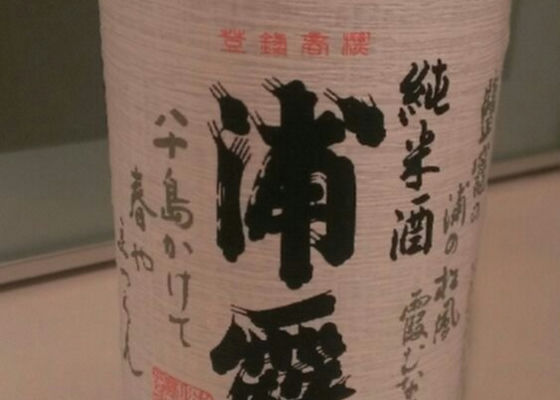 登録商標
塩竈の
浦の松風
霞むな
純米酒
浦霞
八十島かけて
春や
たつらん